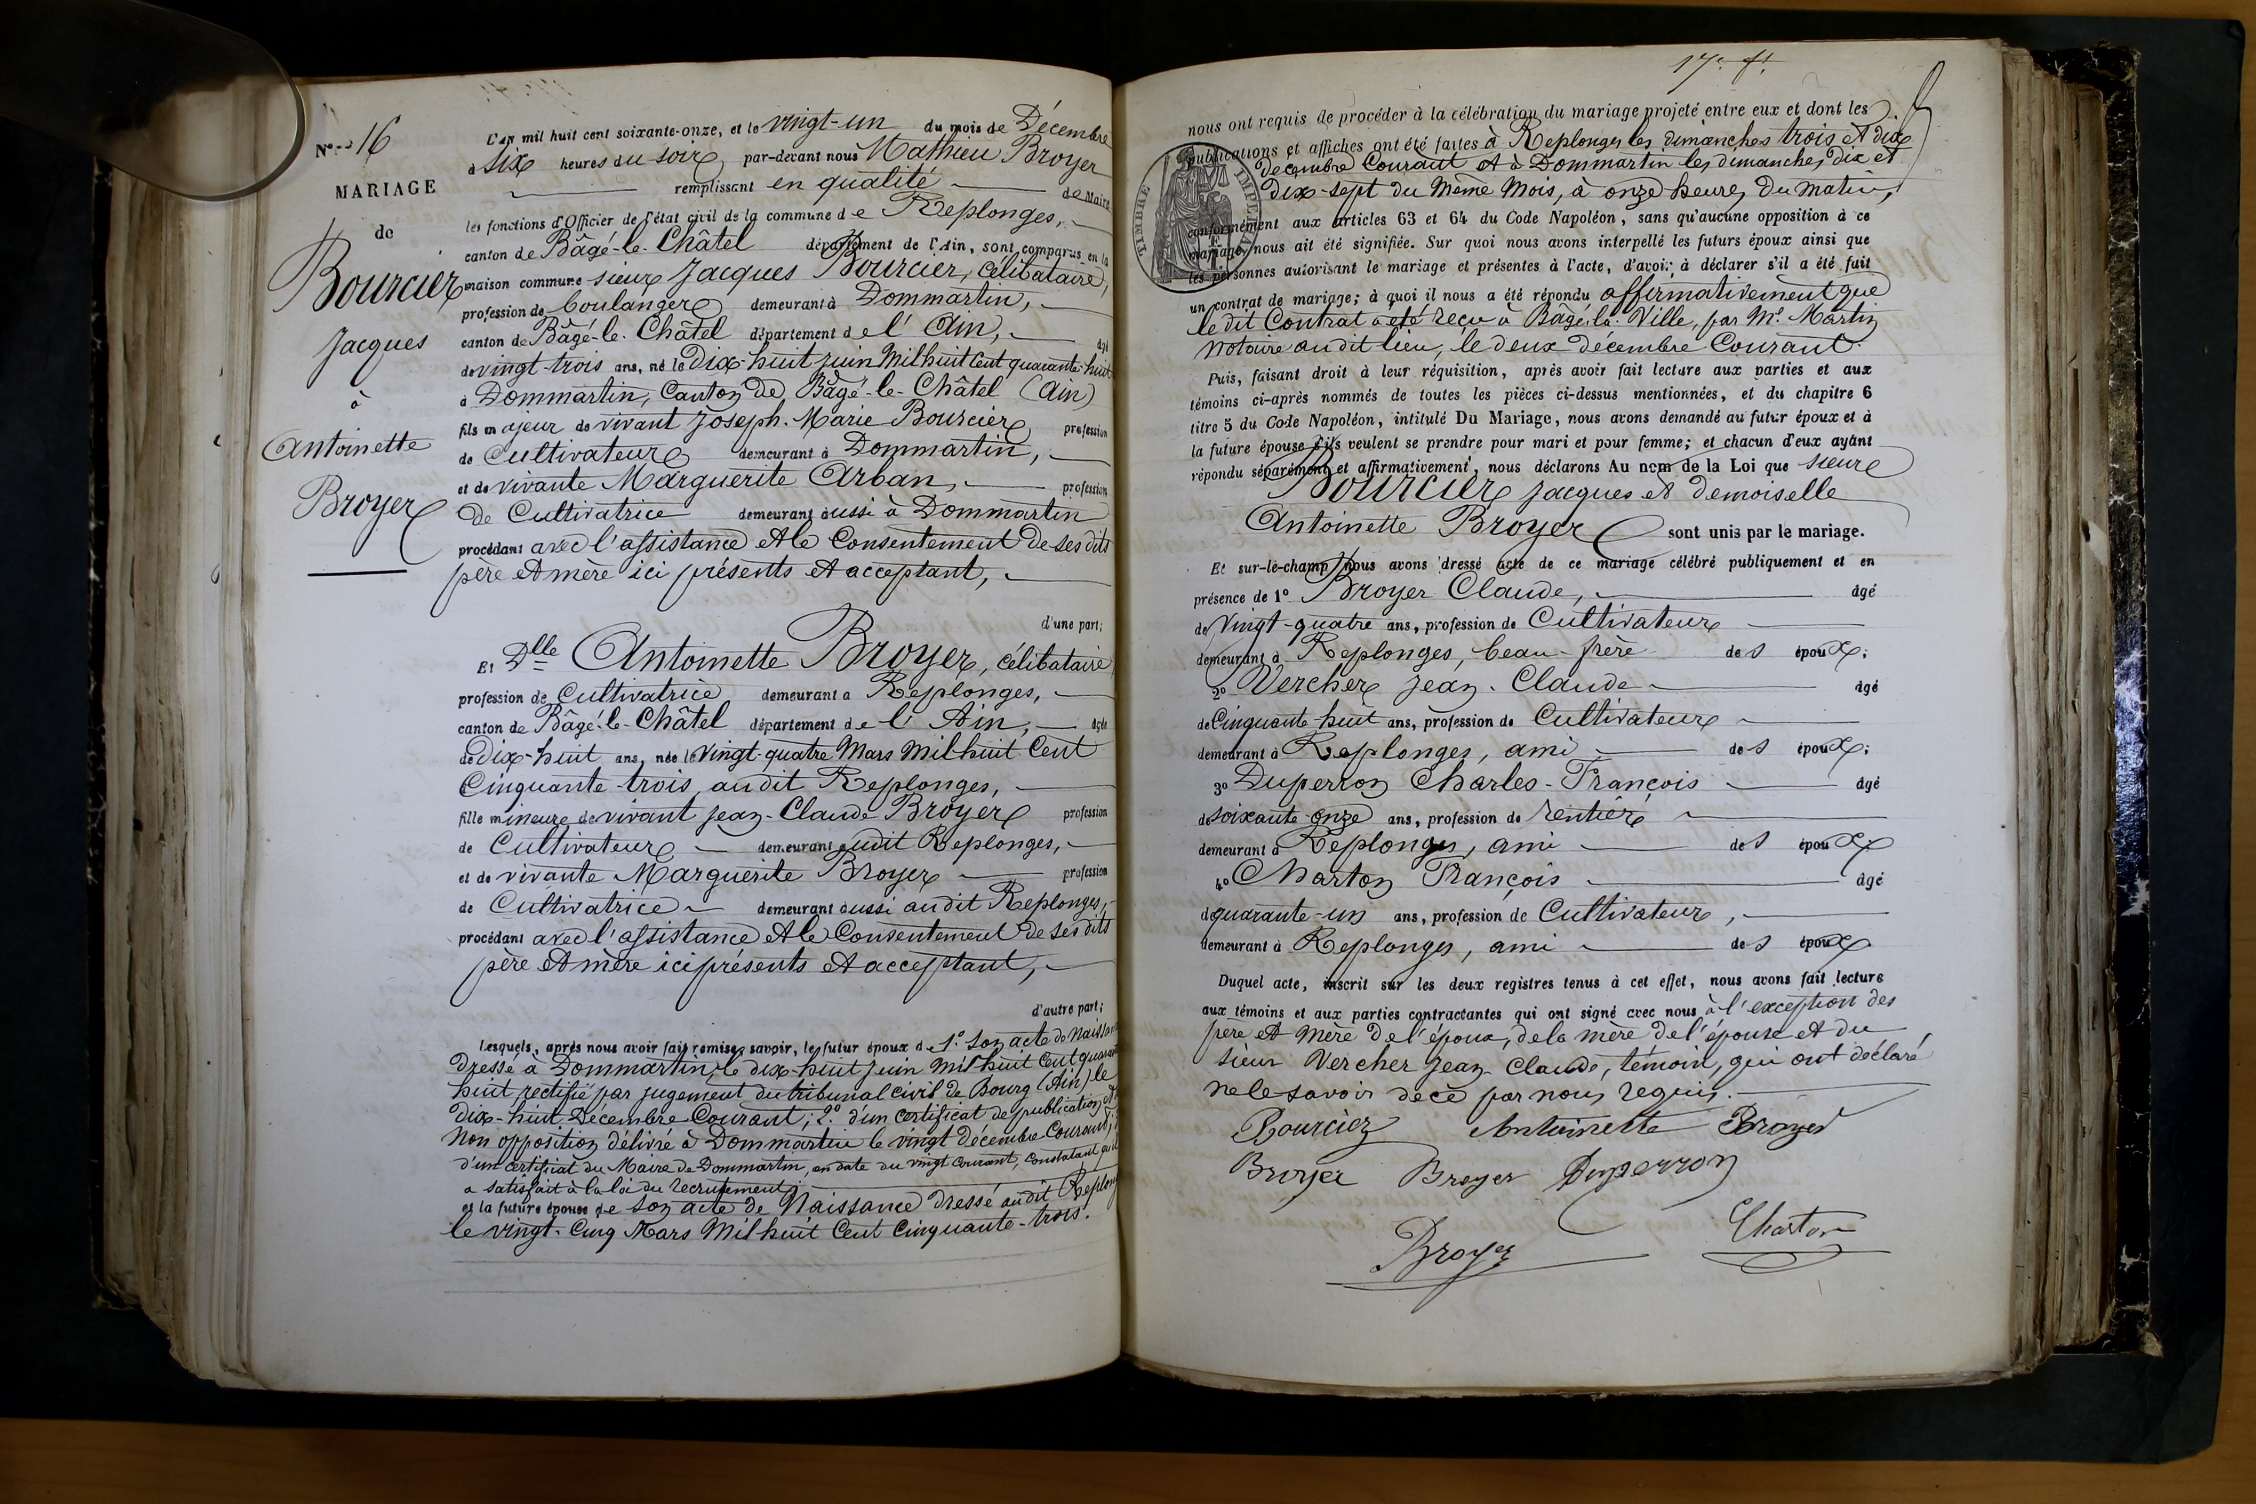 N° 16
MARIAGE
de
Bourcier
Jacques
à
Antoinette
Broyer
L'an mil huit cent soixante-onze, et le vingt-un du mois de Décembre
à six heures du soir, par-devant nous Mathieu Broyer
remplissant en qualité de Maire
les fonctions d'Officier de l'état civil de la commune de Replonges,
canton de Bâgé-le-Châtel département de l'Ain, sont comparus en la
maison commune sieur Jacques Bourcier, célibataire,
profession de boulanger demeurant à Dommartin,
canton de Bâgé-le-Châtel département de l'Ain, âgé
de vingt-trois ans, né le Dix-huit juin Mil huit Cent quarante-huit
à Dommartin, Canton de Bâgé-le-Châtel (Ain)
fils majeur de vivant Joseph-Marie Bourcier profession
de Cultivateur demeurant à Dommartin,
et de vivante Marguerite Arban, profession
De Cultivatrice demeurant aussi à Dommartin
procédant avec l'assistance et le Consentement De ses dits
père et mère ici présents et acceptant,
d'une part;
Et Dlle Antoinette Broyer, célibataire
profession de Cultivatrice demeurant à Replonges,
canton de Bâgé-le-Châtel département de l'Ain, âgée
de dix-huit ans, née le Vingt-quatre Mars Mil huit Cent
Cinquante-trois, audit Replonges,
fille mineure de vivant Jean-Claude Broyer profession
de Cultivateur demeurant audit Replonges,
et de vivante Marguerite Broyer profession
de Cultivatrice demeurant aussi audit Replonges,
procédant avec l'assistance et le Consentement de ses dits
père et mère ici présents et acceptant,
d'autre part;
Lesquels, après nous avoir fait remise, savoir, le futur époux de 1° son acte de Naissan
Dressé à Dommartin, le dix-huit juin mil huit Cent quarant
huit, rectifié par jugement du tribunal civil de Bourg (Ain) le
dix-huit Décembre Courant; 2° d'un certificat de publication et
Non opposition délivré à Dommartin le vingt Décembre Courant;
d'un certificat du Maire de Dommartin, en date du vingt courant, constatant qu'il
a satisfait à la loi du recrutement;
et la future épouse de son acte de Naissance dressé audit Replong
le vingt-Cinq Mars Mil huit Cent Cinquante-trois.
17e f.
nous ont requis de procéder à la célébration du mariage projeté entre eux et dont les
publications et affiches ont été faites à Replonges les dimanches trois et dix
decembre Courant et à Dommartin les dimanches dix et
dix-sept du Même Mois, à onze heures du matin,
TIMBRE IMPERIAL
conformément aux articles 63 et 64 du Code Napoléon, sans qu'aucune opposition à ce
mariage nous ait été signifiée. Sur quoi nous avons interpellé les futurs époux ainsi que
les personnes autorisant le mariage et présentes à l'acte, d'avoir à déclarer s'il a été fait
un contrat de mariage; à quoi il nous a été répondu affirmativement que
le dit Contrat a été reçu à Bâgé-la-Ville, par Me Martin
Notaire audit lieu, le deux décembre Courant.
Puis, faisant droit à leur réquisition, après avoir fait lecture aux parties et aux
témoins ci-après nommés de toutes les pièces ci-dessus mentionnées, et du chapitre 6
titre 5 du Code Napoléon, intitulé Du Mariage, nous avons demandé au futur époux et à
la future épouse s'ils veulent se prendre pour mari et pour femme; et chacun d'eux ayant
répondu séparément et affirmativement, nous déclarons Au nom de la Loi que sieur
Bourcier Jacques et demoiselle
Antoinette Broyer sont unis par le mariage.
Et sur-le-champ nous avons dressé acte de ce mariage célébré publiquement et en
présence de 1° Broyer Claude, âgé
de Vingt-quatre ans, profession de Cultivateur
demeurant à Replonges, beau-frère des époux;
2° Vercher Jean-Claude âgé
de Cinquante-huit ans, profession de Cultivateur
demeurant à Replonges, ami des époux;
3° Duperron Charles-François âgé
de soixante-onze ans, profession de rentier
demeurant à Replonges, ami des époux
4° Charton François âgé
de quarante-un ans, profession de Cultivateur,
demeurant à Replonges, ami des époux
Duquel acte, inscrit sur les deux registres tenus à cet effet, nous avons fait lecture
aux témoins et aux parties contractantes qui ont signé avec nous à l'exception des
père et Mère de l'époux, de la mère de l'épouse et du
sieur Vercher Jean-Claude, témoin, qui ont déclaré
ne le savoir de ce par nous requis.
Bourcier Antoinette Broyer
Broyer Broyer Duperron
Broyer Charton